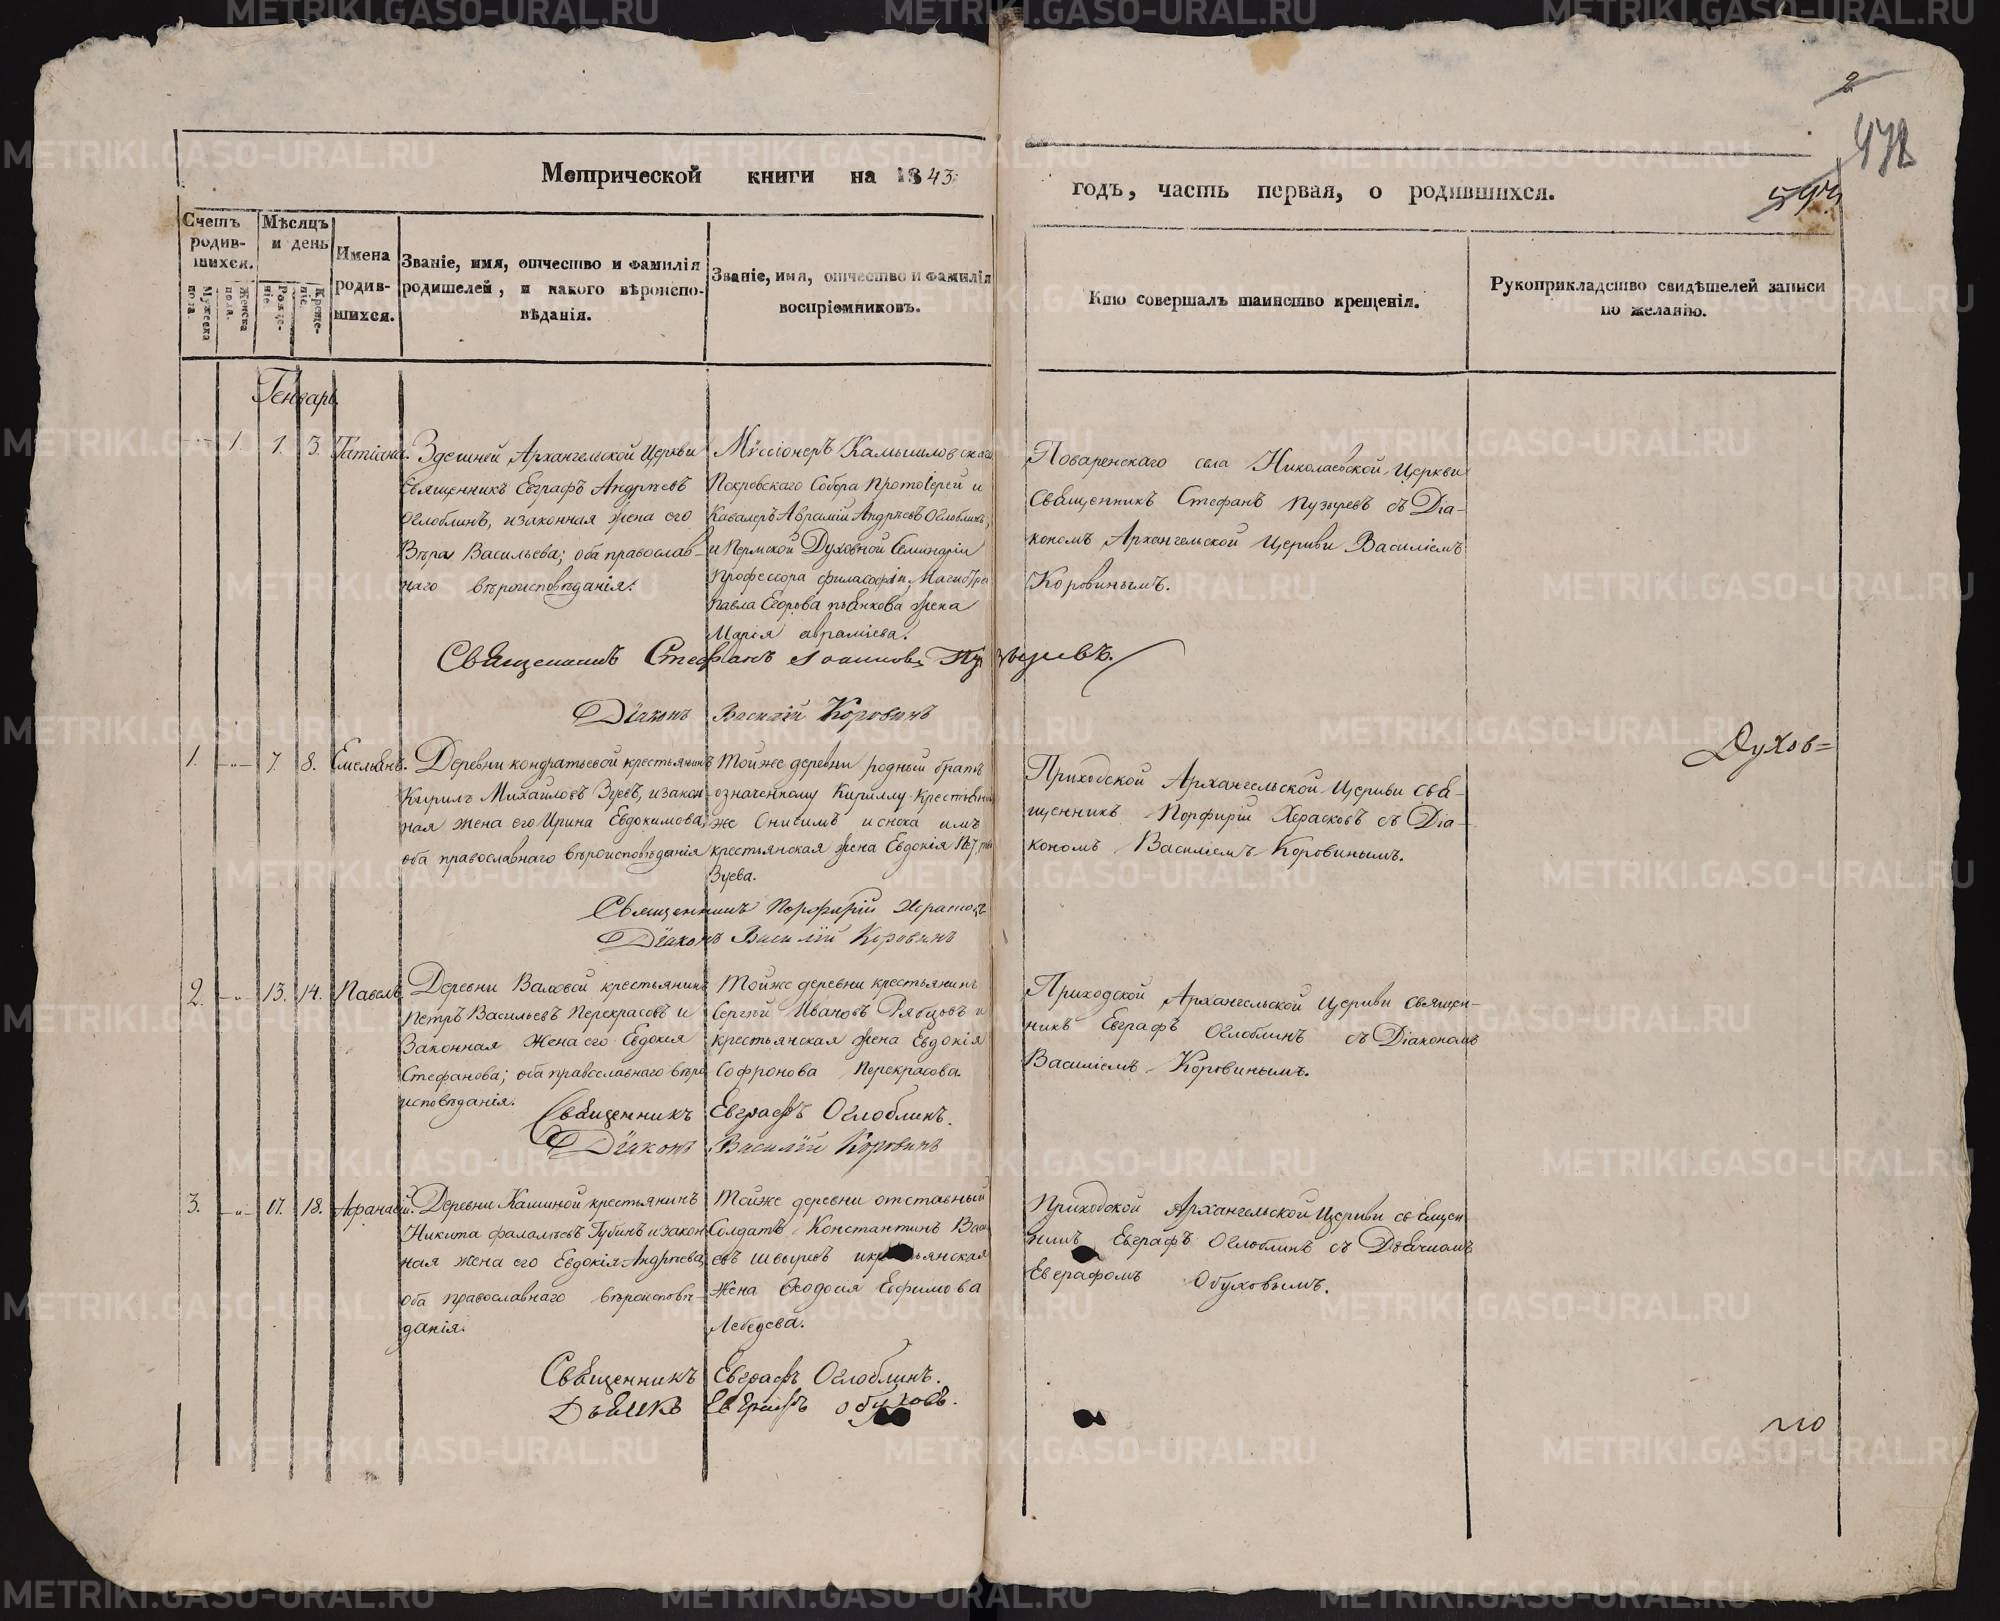 2
478
Метрической книги на 1843
годъ, часть первая, о родившихся.
Счетъ родив-шихся.
Мужеска пола.
Женска пола.
Мѣсяцъ и день
Рожде-ніе.
Креще-ніе.
Имена родив-шихся.
Званіе, имя, отчество и фамилія
родителей, и какого вѣроиспо-
вѣданія.
Званіе, имя, отчество и фамилія
воспріемниковъ.
Кто совершалъ таинство крещенія.
Рукоприкладство свидѣтелей записи
по желанію.
Генварь
1. 1. 3. Татіана.
Здешней Архангельской Церкви
Священникъ Евграфъ Андрѣевъ
Оглоблинъ, и законная жена его
Вѣра Васильева; оба православ-
наго вѣроисповѣданія.
Миссіонеръ Камышловскаго
Покровскаго Собора Протоіерей и
Кавалеръ Аврамій Андрѣевъ Оглоблинъ,
и Пермской Духовной Семинаріи
Профессора философіи, Магистра
Павла Егорова пьянкова жена
Марія аврамиева.
Поваренскаго села Николаевской Церкви
Священникъ Стефанъ Пузыревъ съ Діа-
кономъ Архангельской Церкви Василіемъ
Коровинымъ.
Священникъ Стефанъ Іоанновъ Пузыревъ.
Діаконъ Василій Коровинъ
1. 7. 8. Емельянъ.
Деревни кондратьевой крестьянинъ
Кирилъ Михайловъ Зуевъ, и закон-
ная жена его Ирина Евдокимова,
оба православнаго вѣроисповѣданія
Тойже деревни родный братъ
означенному Кириллу крестьянинъ
же Онисимъ и сноха имъ
крестьянская жена Евдокія
Зуева.
Приходской Архангельской Церкви свя-
щенникъ Порфирій Херасковъ съ Діа-
кономъ Василіемъ Коровинымъ.
Духов=
Священникъ Порфирій Херасковъ
Діаконъ Василій Коровинъ
2. 13. 14. Павелъ
Деревни Валовой крестьянинъ
Петръ Васильевъ Перекрасовъ и
Законная жена его Евдокия
Стефанова; оба православнаго вѣро
исповѣданія.
Тойже деревни крестьянинъ
Сергѣй Ивановъ Рябцовъ и
крестьянская жена Евдокія
Софронова Перекрасова.
Приходской Архангельской Церкви Священ-
никъ Евграфъ Оглоблинъ съ Діакономъ
Василіемъ Коровинымъ.
Священникъ Евграфъ Оглоблинъ.
Діаконъ Василій Коровинъ
3. 17. 18. Афанасій.
Деревни Кашиной крестьянинъ
Никита фалалѣевъ Губинъ и закон
ная жена его Евдокія Андрѣева,
оба православнаго вѣроисповѣ-
данія.
Тойже деревни отставный
Солдатъ Константинъ
евъ швыревъ
жена Ѳеодосія Ефимова
Лебедева.
Приходской Архангельской Церкви священ
никъ Евграфъ Оглоблинъ съ Дьячкомъ
Евграфомъ Обуховымъ.
Священникъ Евграфъ Оглоблинъ.
Дьячкъ Евграфъ обуховъ.